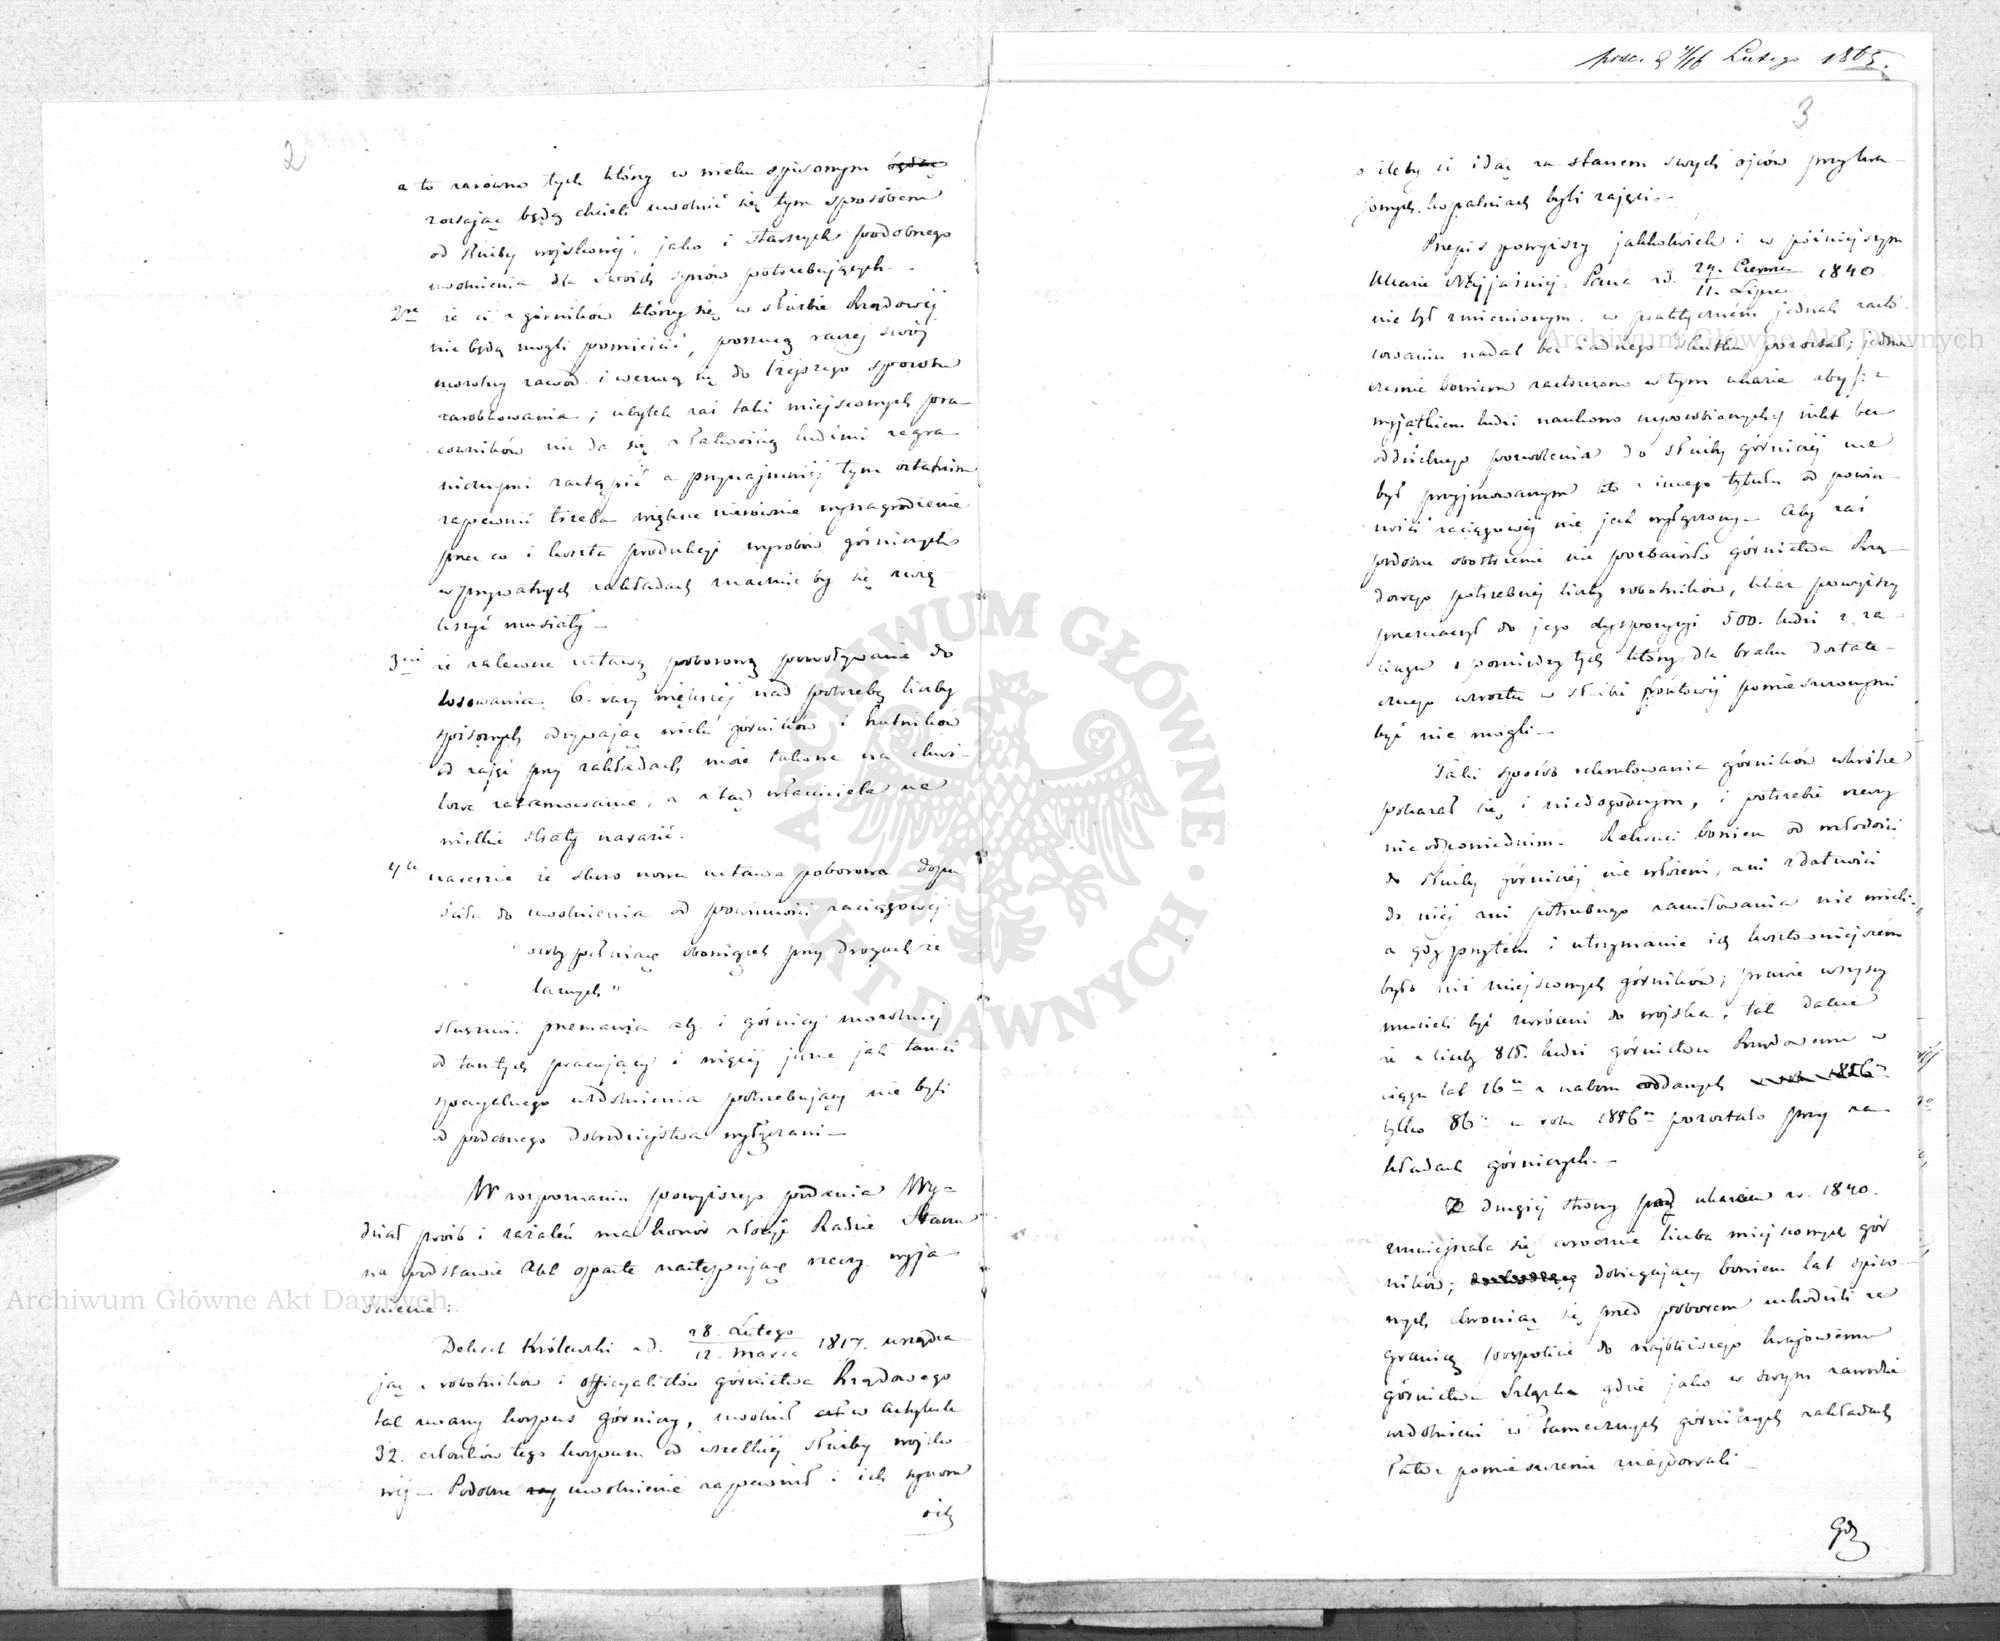 2
a to zarówno tych którzy w wieku spisowym będąc
zostając będą chcieli uwolnić się tym sposobem
od służby wojskowéj, jako i starszych podobnego
uwolnienia dla swoich synów potrzebujących.
2re że ci z górników którzy się w służbie Rządowéj
nie będą mogli pomieścić, porzucą raczéj swój
mozolny zawód i wezmą się do lżejszego sposobu
zarobkowania; ubytek zaś taki miejscowych pra-
cowników nie da się z łatwością ludźmi zagra-
nicznymi zastąpić a przynajmniéj tym ostatnim
zapewnić trzeba większe nierównie wynagrodzenie
przez co i koszta produkcyi wyrobów górniczych
w prywatnych zakładach znacznie by się zwię-
kszyć musiały –
3cie że zalecone ustawą poborową powoływanie do
losowania 6. razy większéj nad potrzebę liczby
spisowych odrywając wielu górników i hutników
od zajęć przy zakładach może takowe na chwi-
lowe zatamowanie, a ztąd właściciela na
wielkie straty narazić.
4te nareszcie że skoro nowa ustawa poborowa dopu-
ściła do uwolnienia od powinności zaciągowéj
"osoby pełniące obowiązek przy drogach że-
laznych"
słuszność przemawia aby i górnicy mozolniéj
od tamtych pracujący i więcéj jeszcze jak tamci
specyalnego uzdolnienia potrzebujący nie byli
od podobnego dobrodziejstwa wyłączani –
W rozpoznaniu powyższego podania Wy-
dział próśb i zażaleń ma honor złożyć Radzie Stanu
na podstawie akt oparte następujące rzeczy wyja-
śnienie:
Dekret Królewski z d. 28. Lutego / 12. Marca 1817. urządza-
jąc z robotników i officyalistów górnictwa Rządowego
tak zwany korpus górniczy, uwolnił w artykule
32. członków tego korpusu od wszelkiéj służby wojsko-
wéj – Podobne uwolnienie zapewnił i ich synom
oile
prez. d 4/16 Lutego 1865.
3
o ileby ci idąc za stanem swych ojców przy kra-
jowych kopalniach byli zajęci. –
Przepis powyższy jakkolwiek i w późniejszym
Ukazie Najjaśniéj: Pana z d. 29. Czerwca / 11. Lipca 1840
nie był zmienionym, w praktyczném jednak zasto-
sowaniu nadal bez żadnego skutku pozostał; jedno-
cześnie bowiem zastrzeżono w tym ukazie aby /: z
wyjątkiem ludzi naukowo usposobionych :/ nikt bez
oddzielnego pozwolenia do służby górniczéj nie
był przyjmowanym kto z innego tytułu od powin-
ności zaciągowéj nie jest wyłączony – Aby zaś
podobne obostrzenie nie pozbawiło górnictwa Rzą-
dowego potrzebnéj liczby robotników, ukaz powyższy
przeznaczył do jego dyspozycyi 500. ludzi z za-
ciągu z pomiędzy tych którzy dla braku dostate-
cznego wzrostu w służbie frontowéj pomieszczonymi
być nie mogli –
Taki sposób rekrutowania górników wkrótce
pokazał się i niedogodnym, i potrzebie rzeczy
nieodpowiednim. Rekruci bowiem od młodości
do służby górniczéj nie włożeni, ani zdatności
do niéj ani potrzebnego zamiłowania nie mieli,
a gdy przytém i utrzymanie ich kosztowniejszém
było niż miejscowych górników; prawie wszyscy
musieli być zwróceni do wojska, tak dalece
że z liczby 818. ludzi górnictwu Rządowemu w
ciągu lat 16tu z naboru oddanych
tylko 86u w roku 1856m pozostało przy za-
kładach górniczych. –
Z drugiéj strony ukazem z r. 1840.
zmniejszała się corocznie liczba miejscowych gór-
ników; dobiegający bowiem lat spiso-
wych chroniąc się przed poborem uchodzili za
granicę pospolicie do najbliższego krajowému
górnictwu Szląska gdzie jako w swym zawodzie
uzdolnieni w tamecznych górniczych zakładach
łatwe pomieszczenie znajdowali –
Gdy
Archiwum Główne Akt Dawnych
Archiwum Główne Akt Dawnych
ARCHIWUM GŁÓWNE · AKT DAWNYCH ·